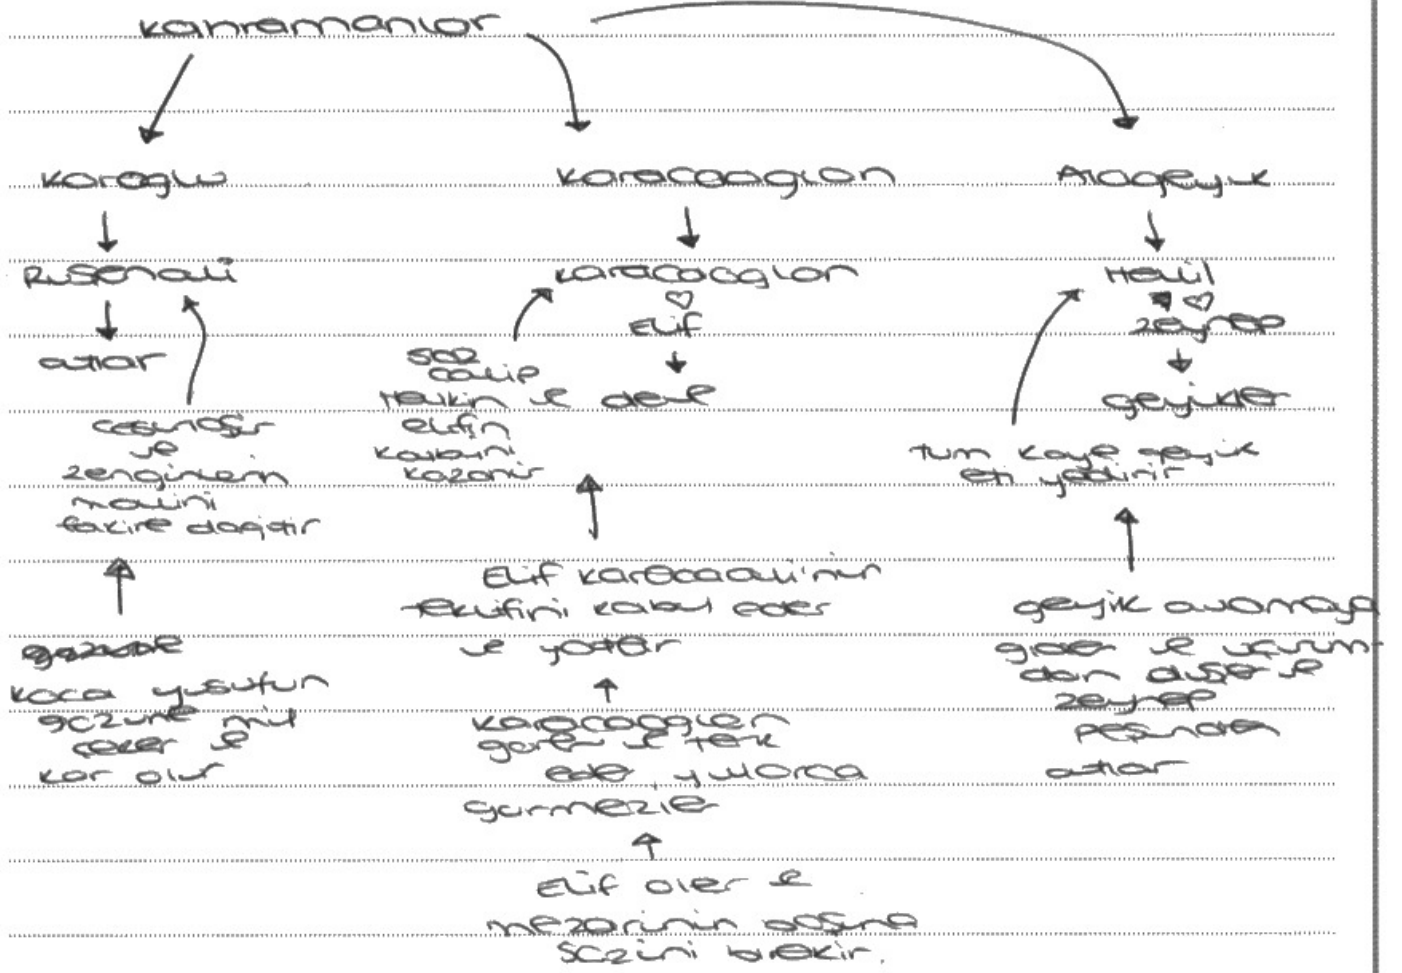 kahramanlar
Koroglu
Rusenali
atlar
cesurdur
ve
zenginlerin
malini
fakire dagitir
koca yusufun
gozune mil
ceker ve
kor olur
Karacaoglan
karacaoglan
♡
Elif
deve
saz
calip
Halkin ve
elifin
kalbini
kazanir
Elif karacaali'nin
teklifini kabul eder
ve yatar
karacaoglan
gorer ve terk
eder yıllarca
gormezler
Elif oler ve
mezarinin başına
sazini birakir.
Alageyik
Halil
♡
zeynep
geyikler
tum koye geyik
eti yedirir
geyik avlamaya
gider ve uçurum-
dan düşer ve
zeynep
peşinden
atlar